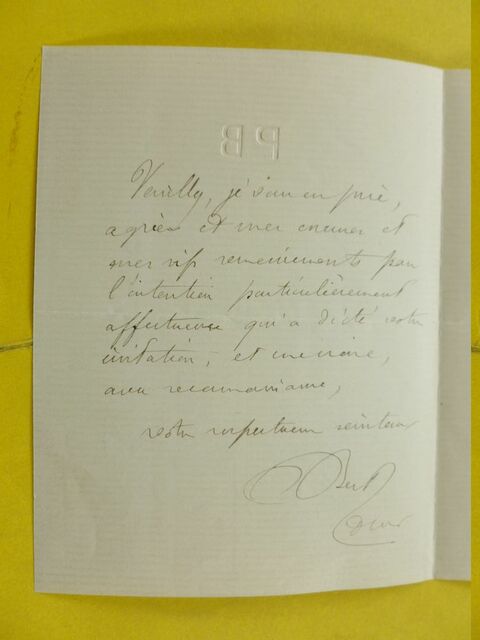 PB
Veuillez, je vous en prie,
agréer et mes excuses et
mes vifs remerciements pour
l'intention particulièrement
affectueuse qui a dicté votre
invitation, et me croire,
avec reconnaissance,
votre respectueux serviteur